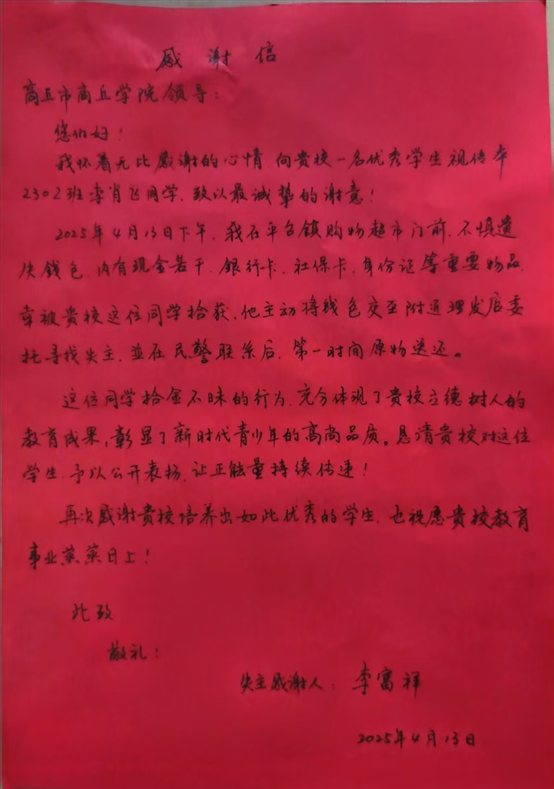 感谢信
商丘市商丘学院领导：
您们好！
我怀着无比感谢的心情向贵校一名优秀学生视传本
2302班李肖飞同学，致以最诚挚的谢意！
2025年4月13日下午，我在平台镇购物超市门前，不慎遗
失钱包，内有现金若干、银行卡、社保卡、身份证等重要物品，
幸被贵校这位同学拾获，他主动将钱包交至附近理发店委
托寻找失主，並在民警联系后，第一时间原物送还。
这位同学拾金不昧的行为，充分体现了贵校立德树人的
教育成果，彰显了新时代青少年的高尚品质。恳请贵校对这位
学生，予以公开表扬，让正能量持续传递！
再次感谢贵校培养出如此优秀的学生，也祝愿贵校教育
事业蒸蒸日上！
此致
敬礼！
失主感谢人：李富祥
2025年4月13日